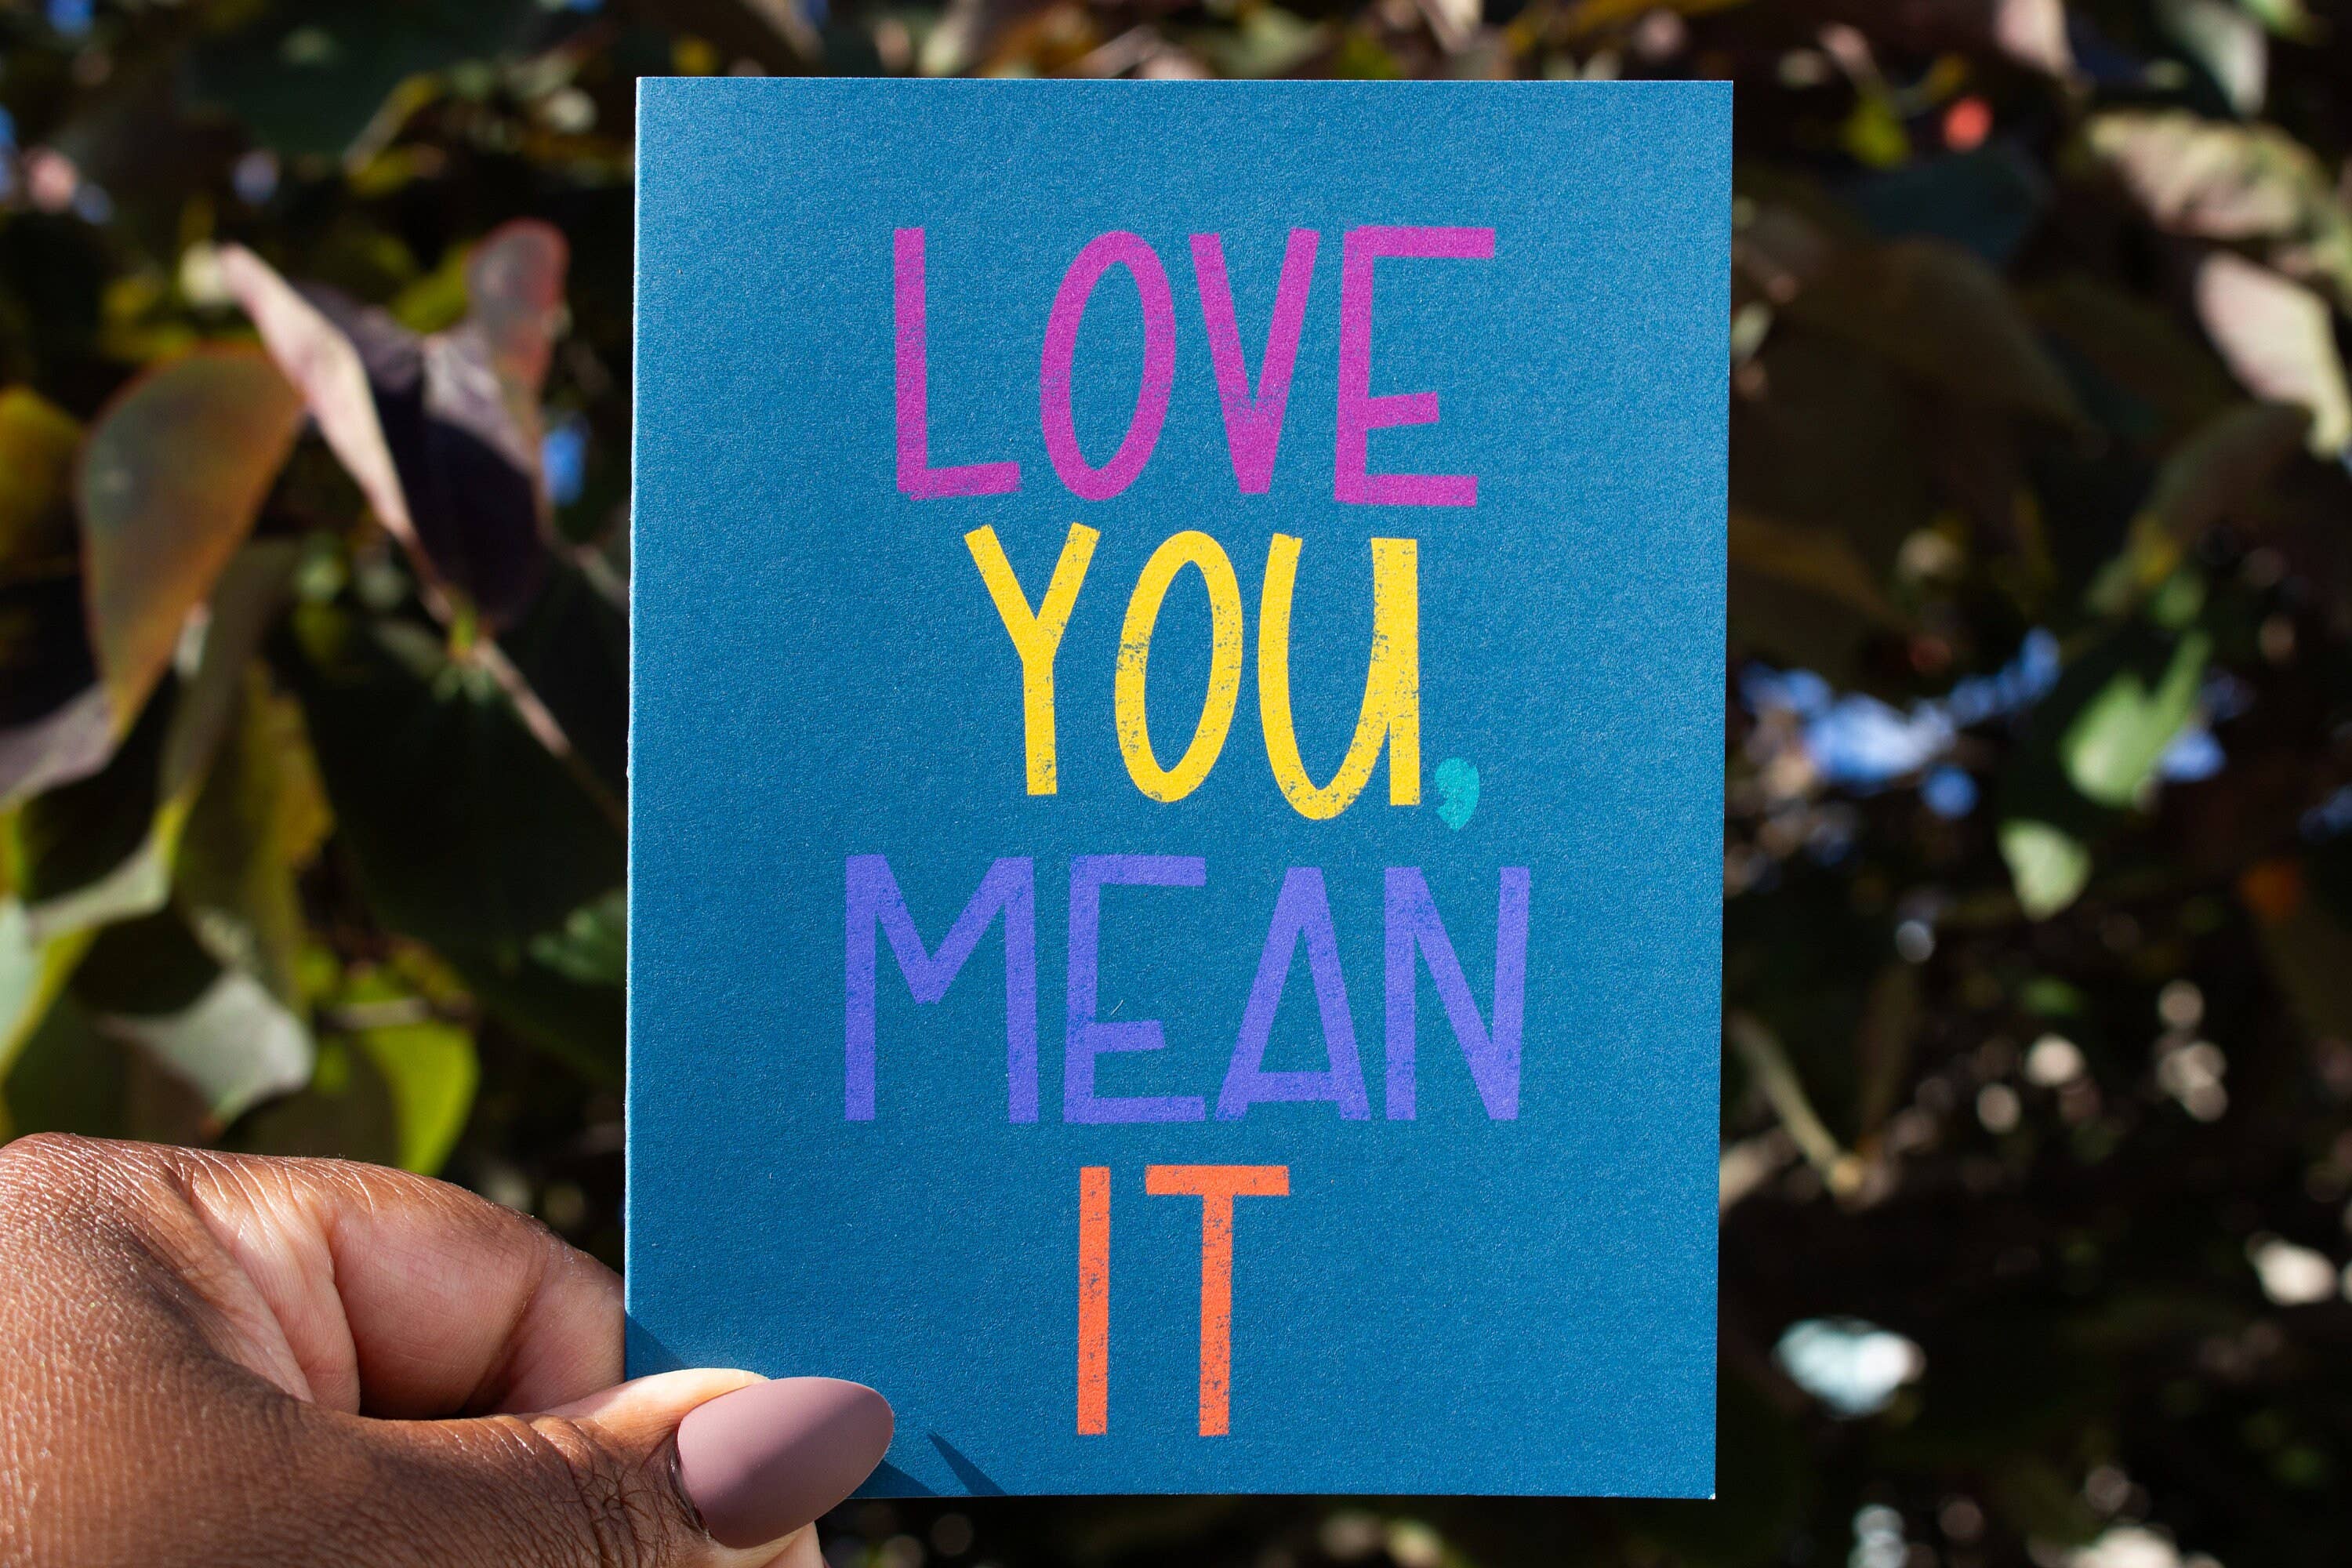 LOVE
YOU,
MEAN
IT